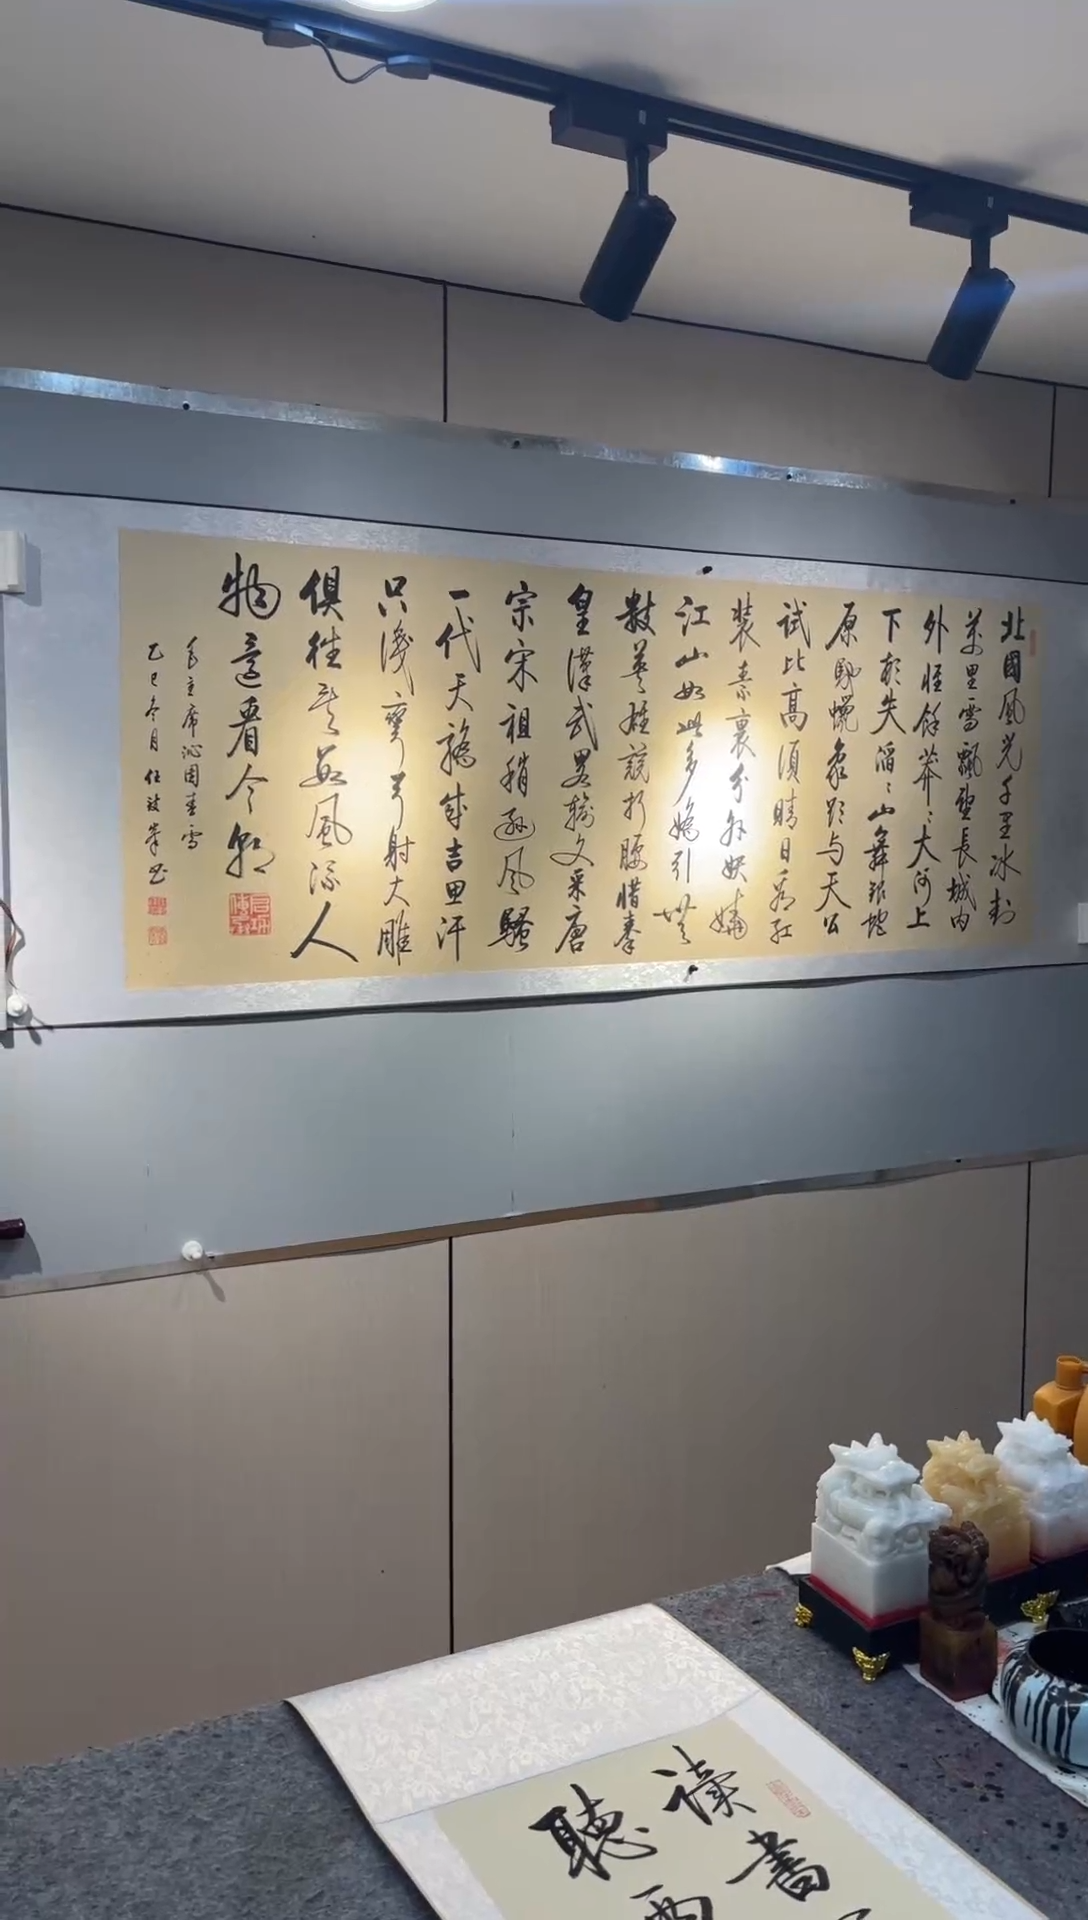 北國風光千里冰封
萬里雪飄望長城內
外惟餘莽〻大河上
下頓失滔〻山舞銀蛇
原馳蠟象欲与天公
試比高須晴日看紅
裝素裹分外妖嬈
江山如此多嬌引無
數英雄競折腰惜秦
皇漢武略輸文采唐
宗宋祖稍遜風騷
一代天驕成吉思汗
只識彎弓射大雕
俱往矣數風流人
物還看今朝
毛主席沁園春雪
乙巳冬月任書
读書
聽雨